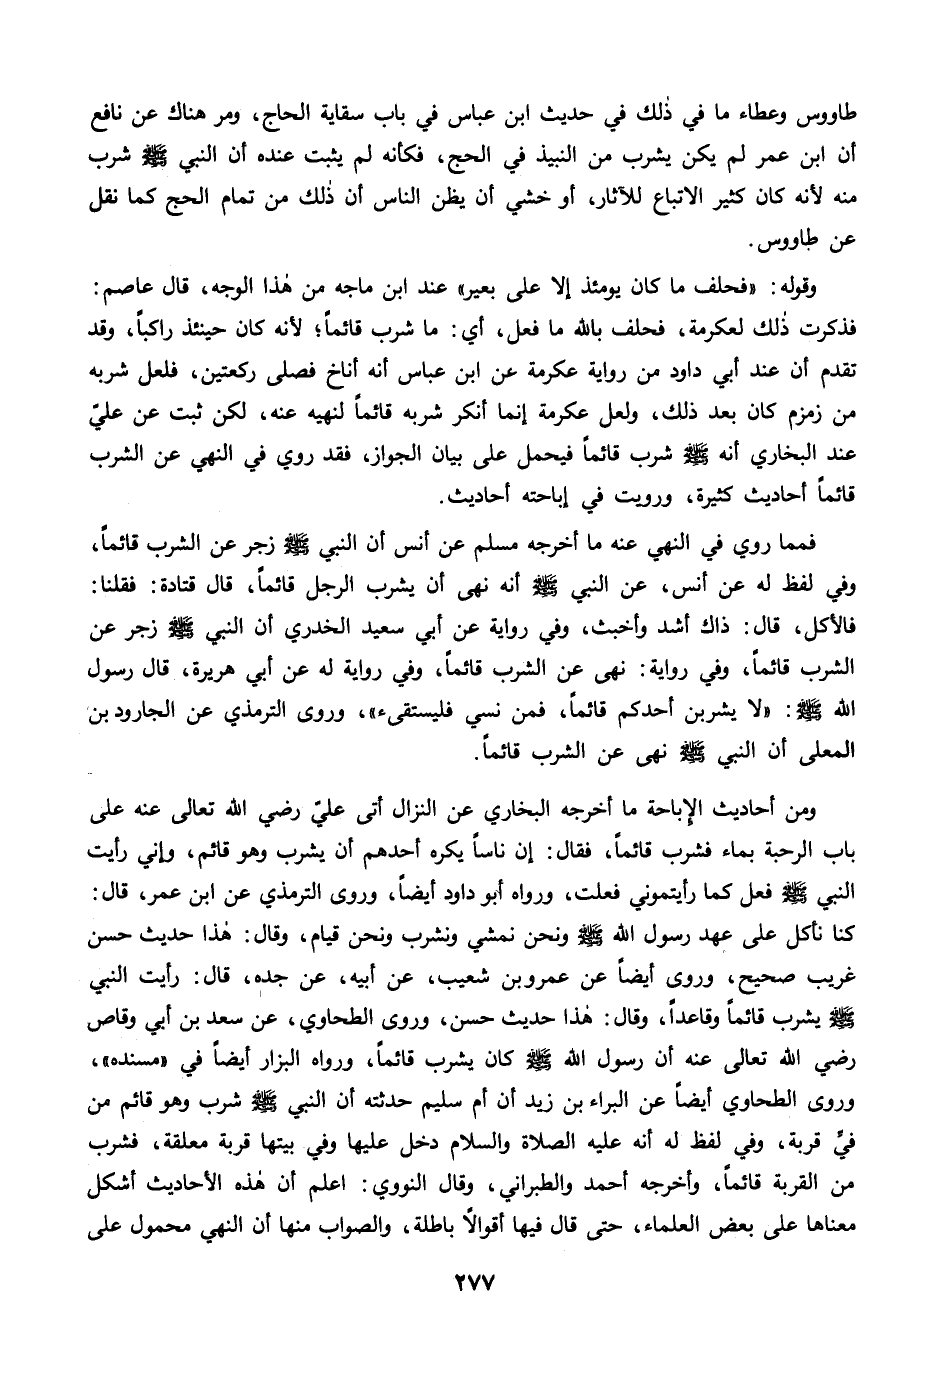 طاووس وعطاء ما في ذٰلك في حديث ابن عباس في باب سقاية الحاج، ومر هناك عن نافع
أن ابن عمر لم يكن يشرب من النبيذ في الحج، فكأنه لم يثبت عنده أن النبي ﷺ شرب
منه لأنه كان كثير الاتباع للآثار، أو خشي أن يظن الناس أن ذٰلك من تمام الحج كما نقل
عن طاووس.
وقوله: «فحلف ما كان يومئذ إلا على بعير» عند ابن ماجه من هٰذا الوجه، قال عاصم:
فذكرت ذٰلك لعكرمة، فحلف بالله ما فعل، أي: ما شرب قائماً؛ لأنه كان حينئذ راكباً، وقد
تقدم أن عند أبي داود من رواية عكرمة عن ابن عباس أنه أناخ فصلى ركعتين، فلعل شربه
من زمزم كان بعد ذلك، ولعل عكرمة إنما أنكر شربه قائماً لنهيه عنه، لكن ثبت عن عليّ
عند البخاري أنه ﷺ شرب قائماً فيحمل على بيان الجواز، فقد روي في النهي عن الشرب
قائماً أحاديث كثيرة، ورويت في إباحته أحاديث.
فمما روي في النهي عنه ما أخرجه مسلم عن أنس أن النبي ﷺ زجر عن الشرب قائماً،
وفي لفظ له عن أنس، عن النبي ﷺ أنه نهى أن يشرب الرجل قائماً، قال قتادة: فقلنا:
فالأكل، قال: ذاك أشد وأخبث، وفي رواية عن أبي سعيد الخدري أن النبي ﷺ زجر عن
الشرب قائماً، وفي رواية: نهى عن الشرب قائماً، وفي رواية له عن أبي هريرة، قال رسول
الله ﷺ: «لا يشربن أحدكم قائماً، فمن نسي فليستقىء»، وروى الترمذي عن الجارود بن
المعلى أن النبي ﷺ نهى عن الشرب قائماً.
ومن أحاديث الإباحة ما أخرجه البخاري عن النزال أتى عليّ رضي الله تعالى عنه على
باب الرحبة بماء فشرب قائماً، فقال: إن ناساً يكره أحدهم أن يشرب وهو قائم، وإني رأيت
النبي ﷺ فعل كما رأيتموني فعلت، ورواه أبو داود أيضاً، وروى الترمذي عن ابن عمر، قال:
كنا نأكل على عهد رسول الله ﷺ ونحن نمشي ونشرب ونحن قيام، وقال: هٰذا حديث حسن
غريب صحيح، وروى أيضاً عن عمرو بن شعيب، عن أبيه، عن جده، قال: رأيت النبي
ﷺ يشرب قائماً وقاعداً، وقال: هٰذا حديث حسن، وروى الطحاوي، عن سعد بن أبي وقاص
رضي الله تعالى عنه أن رسول الله ﷺ كان يشرب قائماً، ورواه البزار أيضاً في «مسنده»،
وروى الطحاوي أيضاً عن البراء بن زيد أن أم سليم حدثته أن النبي ﷺ شرب وهو قائم من
فيِّ قربة، وفي لفظ له أنه عليه الصلاة والسلام دخل عليها وفي بيتها قربة معلقة، فشرب
من القربة قائماً، وأخرجه أحمد والطبراني، وقال النووي: اعلم أن هٰذه الأحاديث أشكل
معناها على بعض العلماء، حتى قال فيها أقوالاً باطلة، والصواب منها أن النهي محمول على
٢٧٧